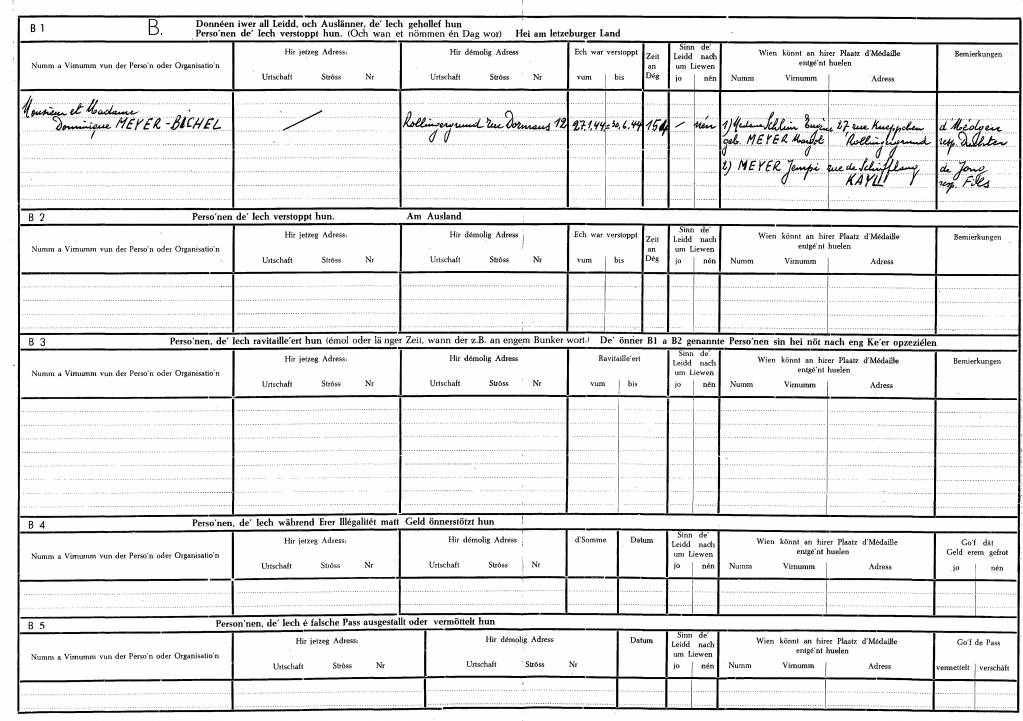 B 1 B. Donnéen iwer all Leidd, och Auslänner, de' Iech gehollef hun
Perso'nen de' Iech verstoppt hun. (Och wan et nömmen én Dag wor) Hei am letzeburger Land
Numm a Virnumm vun der Perso'n oder Organisatio'n
Hir jetzeg Adress:
Urtschaft Ströss Nr
Hir démolig Adress
Urtschaft Ströss Nr
Ech war verstoppt
vum bis
Zeit an Dég
Sinn de' Leidd nach um Liewen
jo nén
Wien könnt an hirer Plaatz d'Médaille entgé'nt huelen
Numm Virnumm Adress
Bemierkungen
Monsieur et Madame
Dominique MEYER-BICHEL / Rollingergrund rue Dormans 12 27.1.44 - 30.6.44 — nén
1) Madame Eugène 27 rue Kueppchen d'Médgen
geb. MEYER Margot Rollingergrund resp.
2) MEYER Jempi rue de Schifflang de Jong
KAYL resp. Fils
B 2 Perso'nen de' Iech verstoppt hun. Am Ausland
Numm a Virnumm vun der Perso'n oder Organisatio'n
Hir jetzeg Adress:
Urtschaft Ströss Nr
Hir démolig Adress
Urtschaft Ströss Nr
Ech war verstoppt
vum bis
Zeit an Dég
Sinn de' Leidd nach um Liewen
jo nén
Wien könnt an hirer Plaatz d'Médaille entgé'nt huelen
Numm Virnumm Adress
Bemierkungen
B 3 Perso'nen, de' Iech ravitaille'ert hun (émol oder länger Zeit, wann der z.B. an engem Bunker wort.) De' önnier B1 a B2 genannte Perso'nen sin hei nöt nach eng Ke'er opzeziélen
Numm a Virnumm vun der Perso'n oder Organisatio'n
Hir jetzeg Adress:
Urtschaft Ströss Nr
Hir démolig Adress
Urtschaft Ströss Nr
Ravitaille'ert
vum bis
Sinn de' Leidd nach um Liewen
jo nén
Wien könnt an hirer Plaatz d'Médaille entgé'nt huelen
Numm Virnumm Adress
Bemierkungen
B 4 Perso'nen, de' Iech während Erer Illégalitét matt Geld önnerstötzt hun
Numm a Virnumm vun der Perso'n oder Organisatio'n
Hir jetzeg Adress:
Urtschaft Ströss Nr
Hir démolig Adress:
Urtschaft Ströss Nr
d'Somme
Datum
Sinn de' Leidd nach um Liewen
jo nén
Wien könnt an hirer Plaatz d'Médaille entgé'nt huelen
Numm Virnumm Adress
Go'f dät Geld erem gefrot
jo nén
B 5 Person'nen, de' Iech é falsche Pass ausgestallt oder vermöttelt hun
Numm a Virnumm vun der Perso'n oder Organisatio'n
Hir jetzeg Adress:
Urtschaft Ströss Nr
Hir démolig Adress
Urtschaft Ströss Nr
Datum
Sinn de' Leidd nach um Liewen
jo nén
Wien könnt an hirer Plaatz d'Médaille entgé'nt huelen
Numm Virnumm Adress
Go'f de Pass
vermettelt verschäft